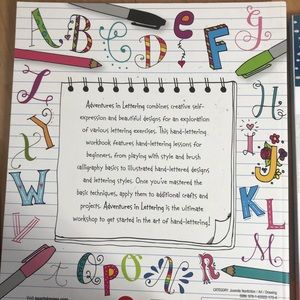 A B C D e F
Adventures in Lettering combines creative self-
expression and beautiful designs for an exploration
of various lettering exercises. This hand-lettering
workbook features hand-lettering lessons for
beginners, from playing with style and brush
calligraphy basics to illustrated hand-lettered designs
and lettering styles. Once you've mastered the
basic techniques, apply them to additional crafts and
projects. Adventures in Lettering is the ultimate
workshop to get started in the art of hand-lettering!
G
H
i J
K L
M
N
O P Q
R
T
W
X
Y
CATEGORY: Juvenile Nonfiction / Art / Drawing